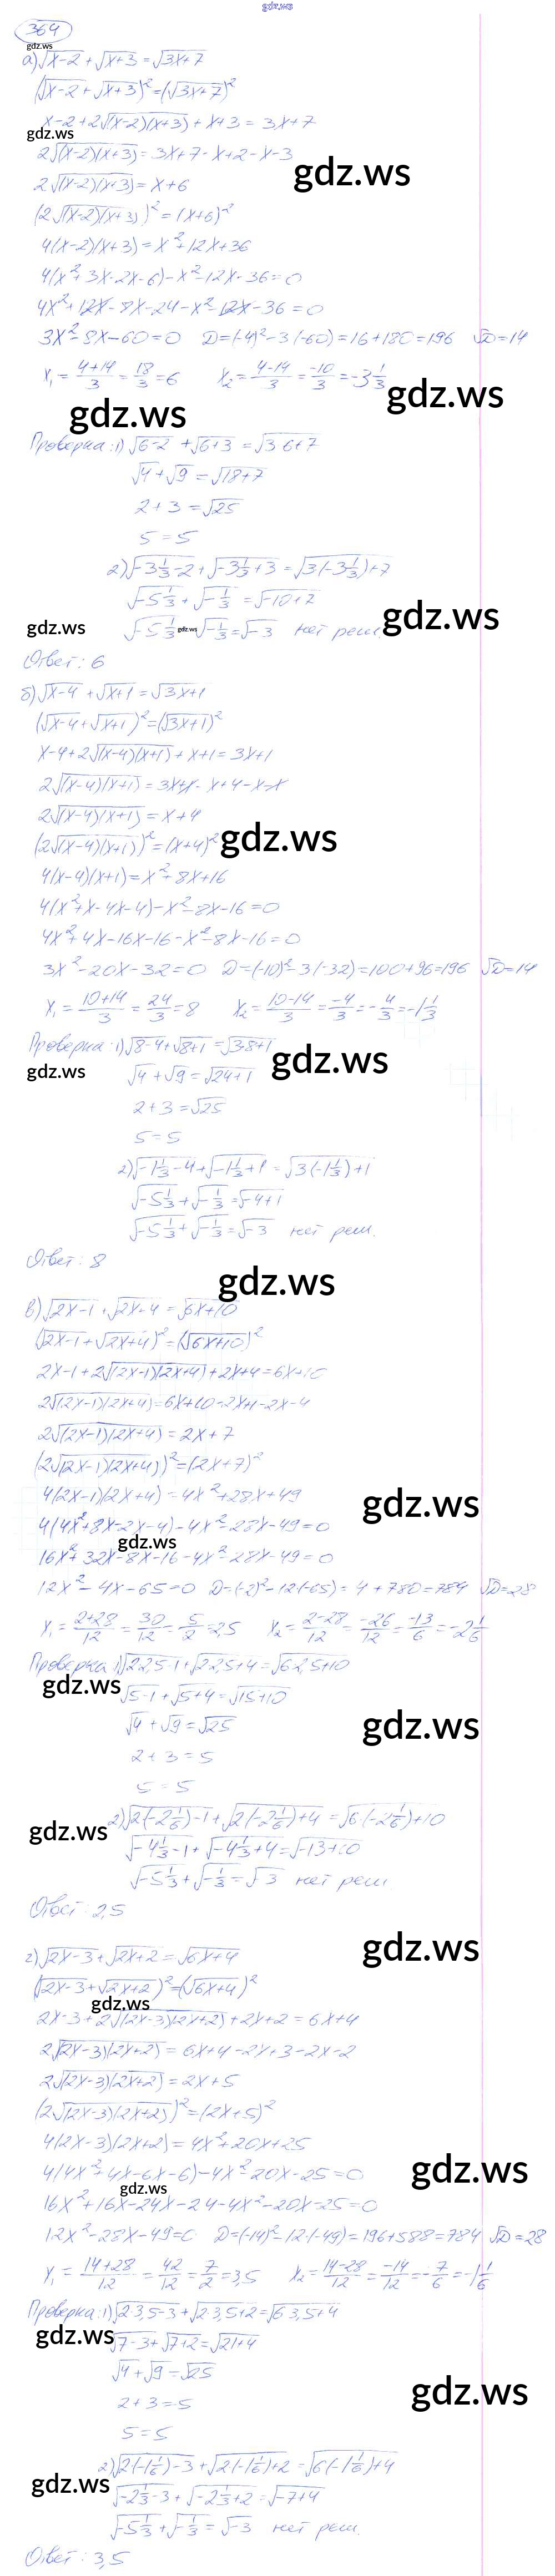 gdz.ws
364
gdz.ws
а) √x-2 + √x+3 = √3x+7
(√x-2 + √x+3)² = (√3x+7)²
x-2+2√(x-2)(x+3) + x+3 = 3x+7
gdz.ws
2√(x-2)(x+3) = 3x+7-x+2-x-3
gdz.ws
2√(x-2)(x+3) = x+6
(2√(x-2)(x+3))² = (x+6)²
4(x-2)(x+3) = x²+12x+36
4(x²+3x-2x-6)-x²-12x-36=0
4x²+12x-8x-24-x²-12x-36=0
3x²-8x-60=0 D=(-4)²-3(-60)=16+180=196 √D=14
x₁ = 4+14/3 = 18/3 = 6 x₂ = 4-14/3 = -10/3 = -3 1/3
gdz.ws
gdz.ws
Проверка: 1) √6-2 + √6+3 = √3·6+7
√4 + √9 = √18+7
2+3 = √25
5 = 5
2) √-3 1/3 -2 + √-3 1/3 +3 = √3(-3 1/3)+7
√-5 1/3 + √-1/3 = √-10+7
gdz.ws
gdz.ws
√-5 1/3 gdz.ws √-1/3 = √-3 нет реш.
Ответ: 6
б) √x-4 + √x+1 = √3x+1
(√x-4 + √x+1)² = (√3x+1)²
x-4+2√(x-4)(x+1) + x+1 = 3x+1
2√(x-4)(x+1) = 3x+1-x+4-x-1
2√(x-4)(x+1) = x+4
(2√(x-4)(x+1))² = (x+4)² gdz.ws
4(x-4)(x+1) = x²+8x+16
4(x²+x-4x-4)-x²-8x-16=0
4x²+4x-16x-16-x²-8x-16=0
3x²-20x-32=0 D=(-10)²-3(-32)=100+96=196 √D=14
x₁ = 10+14/3 = 24/3 = 8 x₂ = 10-14/3 = -4/3 = -4/3 = -1 1/3
Проверка: 1) √8-4 + √8+1 = √3·8+1
gdz.ws
gdz.ws
√4 + √9 = √24+1
2+3 = √25
5 = 5
2) √-1 1/3 -4 + √-1 1/3 +1 = √3(-1 1/3)+1
√-5 1/3 + √-1/3 = √-4+1
√-5 1/3 + √-1/3 = √-3 нет реш.
Ответ: 8
gdz.ws
в) √2x-1 + √2x-4 = √6x+10
(√2x-1 + √2x+4)² = (√6x+10)²
2x-1+2√(2x-1)(2x+4) + 2x+4 = 6x+10
2√(2x-1)(2x+4) = 6x+10-2x+1-2x-4
2√(2x-1)(2x+4) = 2x+7
(2√(2x-1)(2x+4))² = (2x+7)²
4(2x-1)(2x+4) = 4x²+28x+49
gdz.ws
4(4x²+8x-2x-4)-4x²-28x-49=0
gdz.ws
16x²+32x-8x-16-4x²-28x-49=0
12x²-4x-65=0 D=(-2)²-12(-65)=4+780=784 √D=28
x₁ = 2+28/12 = 30/12 = 5/2 = 2,5 x₂ = 2-28/12 = -26/12 = -13/6 = -2 1/6
Проверка 1) √2·2,5-1 + √2·2,5+4 = √6·2,5+10
gdz.ws
√5-1 + √5+4 = √15+10
√4 + √9 = √25
gdz.ws
2+3 = 5
5 = 5
2) √2(-2 1/6)-1 + √2(-2 1/6)+4 = √6·(-2 1/6)+10
gdz.ws
√-4 1/3 -1 + √-4 1/3 +4 = √-13+10
√-5 1/3 + √-1/3 = √-3 нет реш
Ответ: 2,5
г) √2x-3 + √2x+2 = √6x+4
gdz.ws
(√2x-3 + √2x+2)² = (√6x+4)²
gdz.ws
2x-3+2√(2x-3)(2x+2) + 2x+2 = 6x+4
2√(2x-3)(2x+2) = 6x+4-2x+3-2x-2
2√(2x-3)(2x+2) = 2x+5
(2√(2x-3)(2x+2))² = (2x+5)²
4(2x-3)(2x+2) = 4x²+20x+25
4(4x²+4x-6x-6)-4x²-20x-25=0
gdz.ws
gdz.ws
16x²+16x-24x-24-4x²-20x-25=0
12x²-28x-49=0 D=(-14)²-12(-49)=196+588=784 √D=28
x₁ = 14+28/12 = 42/12 = 7/2 = 3,5 x₂ = 14-28/12 = -14/12 = -7/6 = -1 1/6
Проверка: 1) √2·3,5-3 + √2·3,5+2 = √6·3,5+4
gdz.ws
√7-3 + √7+2 = √21+4
√4 + √9 = √25
gdz.ws
2+3 = 5
5 = 5
2) √2(-1 1/6)-3 + √2(-1 1/6)+2 = √6(-1 1/6)+4
gdz.ws
√-2 1/3 -3 + √-2 1/3 +2 = √-7+4
√-5 1/3 + √-1/3 = √-3 нет реш.
Ответ: 3,5